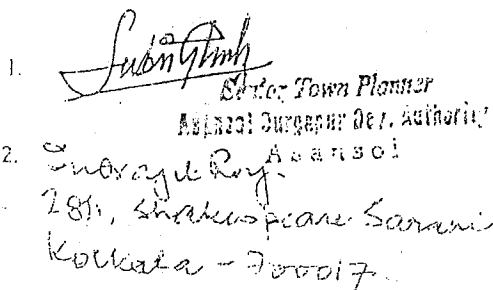 1.
Senior Town Planner
Asansol Durgapur Dev. Authority
Asansol
2. Indrajit Roy.
28/1, Shakespeare Sarani
Kolkata - 700017.